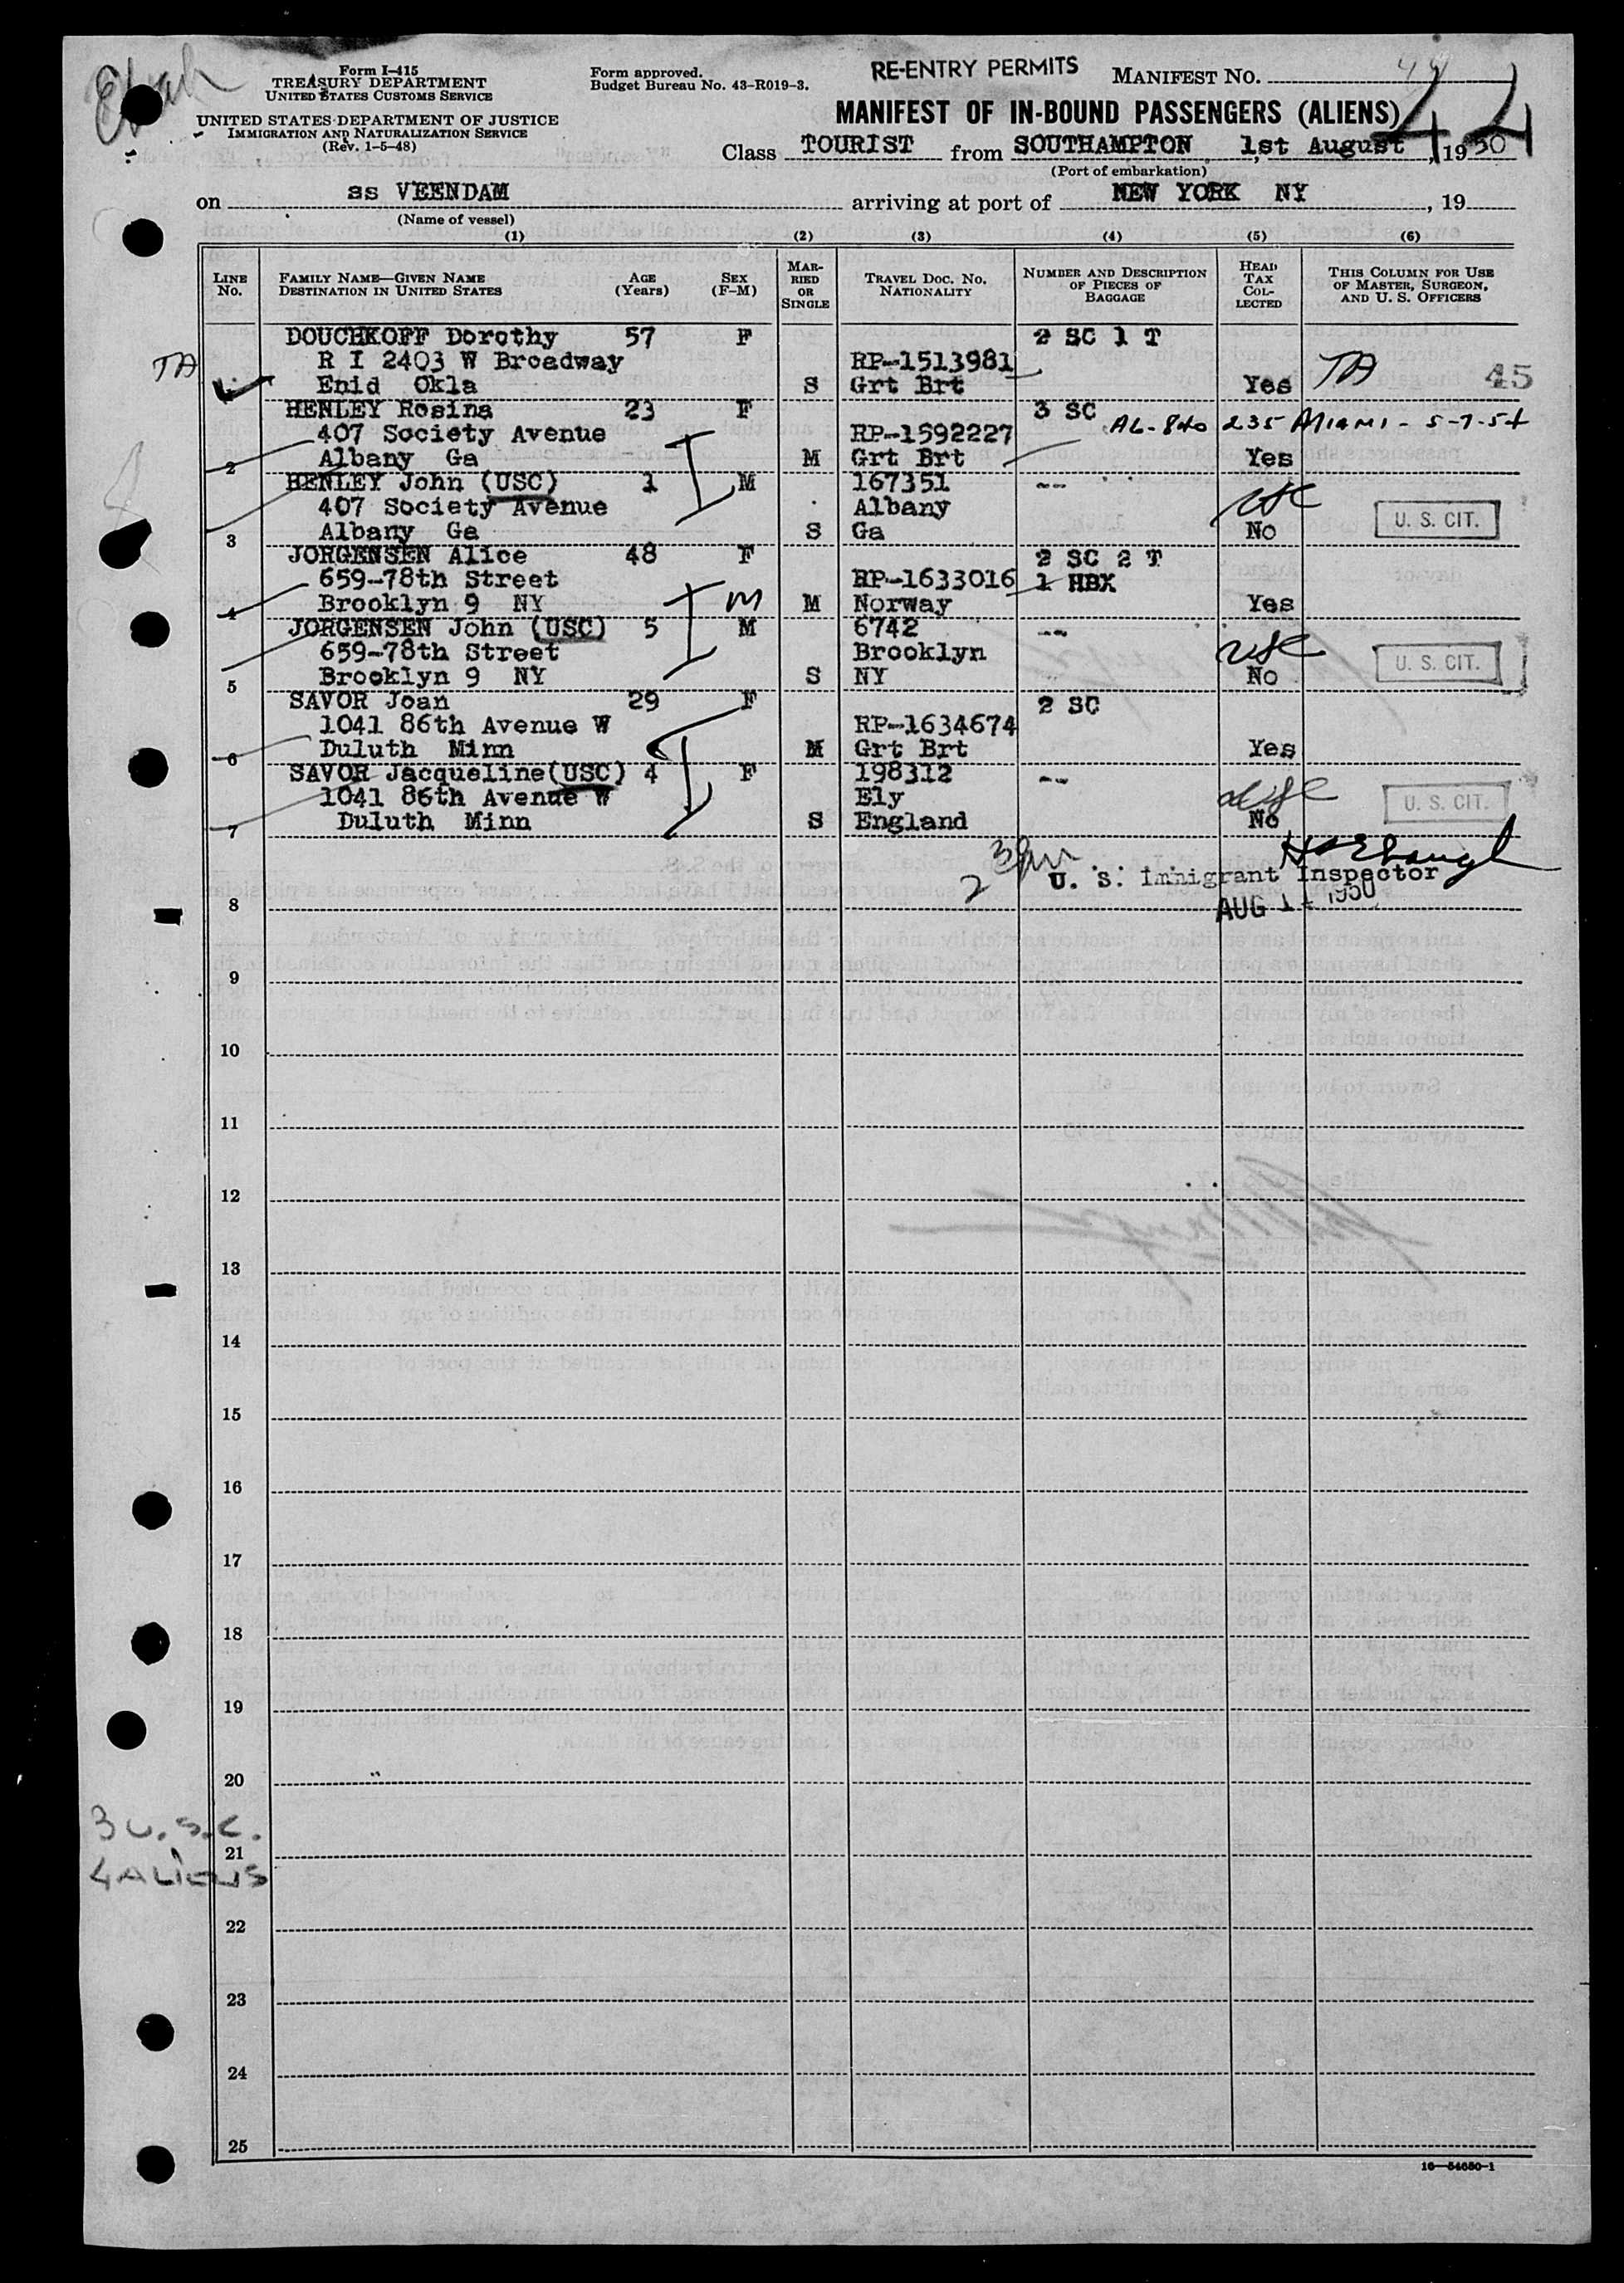 Form I-415
TREASURY DEPARTMENT
UNITED STATES CUSTOMS SERVICE
UNITED STATES DEPARTMENT OF JUSTICE
IMMIGRATION AND NATURALIZATION SERVICE
(Rev. 1-5-48)
Form approved.
Budget Bureau No. 43-R019-3.
RE-ENTRY PERMITS
MANIFEST NO. 44
44
MANIFEST OF IN-BOUND PASSENGERS (ALIENS)
Class TOURIST from SOUTHAMPTON 1st August, 1950
(Port of embarkation)
on ss VEENDAM arriving at port of NEW YORK NY, 19
(Name of vessel)
(1) (2) (3) (4) (5) (6)
LINE No. FAMILY NAME—GIVEN NAME DESTINATION IN UNITED STATES AGE (Years) SEX (F-M) MARRIED OR SINGLE TRAVEL DOC. NO. NATIONALITY NUMBER AND DESCRIPTION OF PIECES OF BAGGAGE HEAD TAX COLLECTED THIS COLUMN FOR USE OF MASTER, SURGEON, AND U. S. OFFICERS
DOUCHKOFF Dorothy 57 F 2 SC 1 T
TA R I 2403 W Broadway RP-1513981 TA 45
1 Enid Okla S Grt Brt Yes
HENLEY Rosina 23 F 3 SC
407 Society Avenue RP-1592227 AL-840 235 MIAMI - 5-7-54
2 Albany Ga M Grt Brt Yes
HENLEY John (USC) 1 M 167351 --
407 Society Avenue Albany USC U. S. CIT.
3 Albany Ga S Ga No
JORGENSEN Alice 48 F 2 SC 2 T
659-78th Street RP-1633016 1 HBX
4 Brooklyn 9 NY M M Norway Yes
JORGENSEN John (USC) 5 M 6742 --
659-78th Street Brooklyn USC U. S. CIT.
5 Brooklyn 9 NY S NY No
SAVOR Joan 29 F 2 SC
1041 86th Avenue W RP-1634674
6 Duluth Minn M Grt Brt Yes
SAVOR Jacqueline(USC) 4 F 198312 --
1041 86th Avenue W Ely USC U. S. CIT.
7 Duluth Minn S England No
U. S. Immigrant Inspector
8 AUG 11 1950
9
10
11
12
13
14
15
16
17
18
19
20
3 U.S.C.
21
4 ALIENS
22
23
24
25
16—54650-1